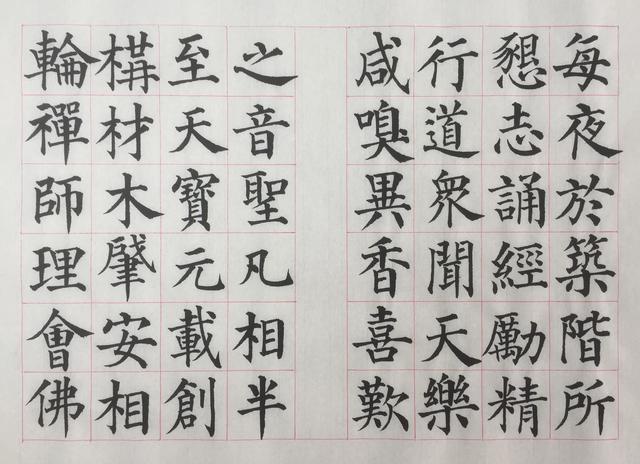 每夜於築階所
懇志誦經勵精
行道眾聞天樂
咸嗅異香喜歎
之音聖凡相半
至天寶元載創
構材木肇安相
輪禪師理會佛